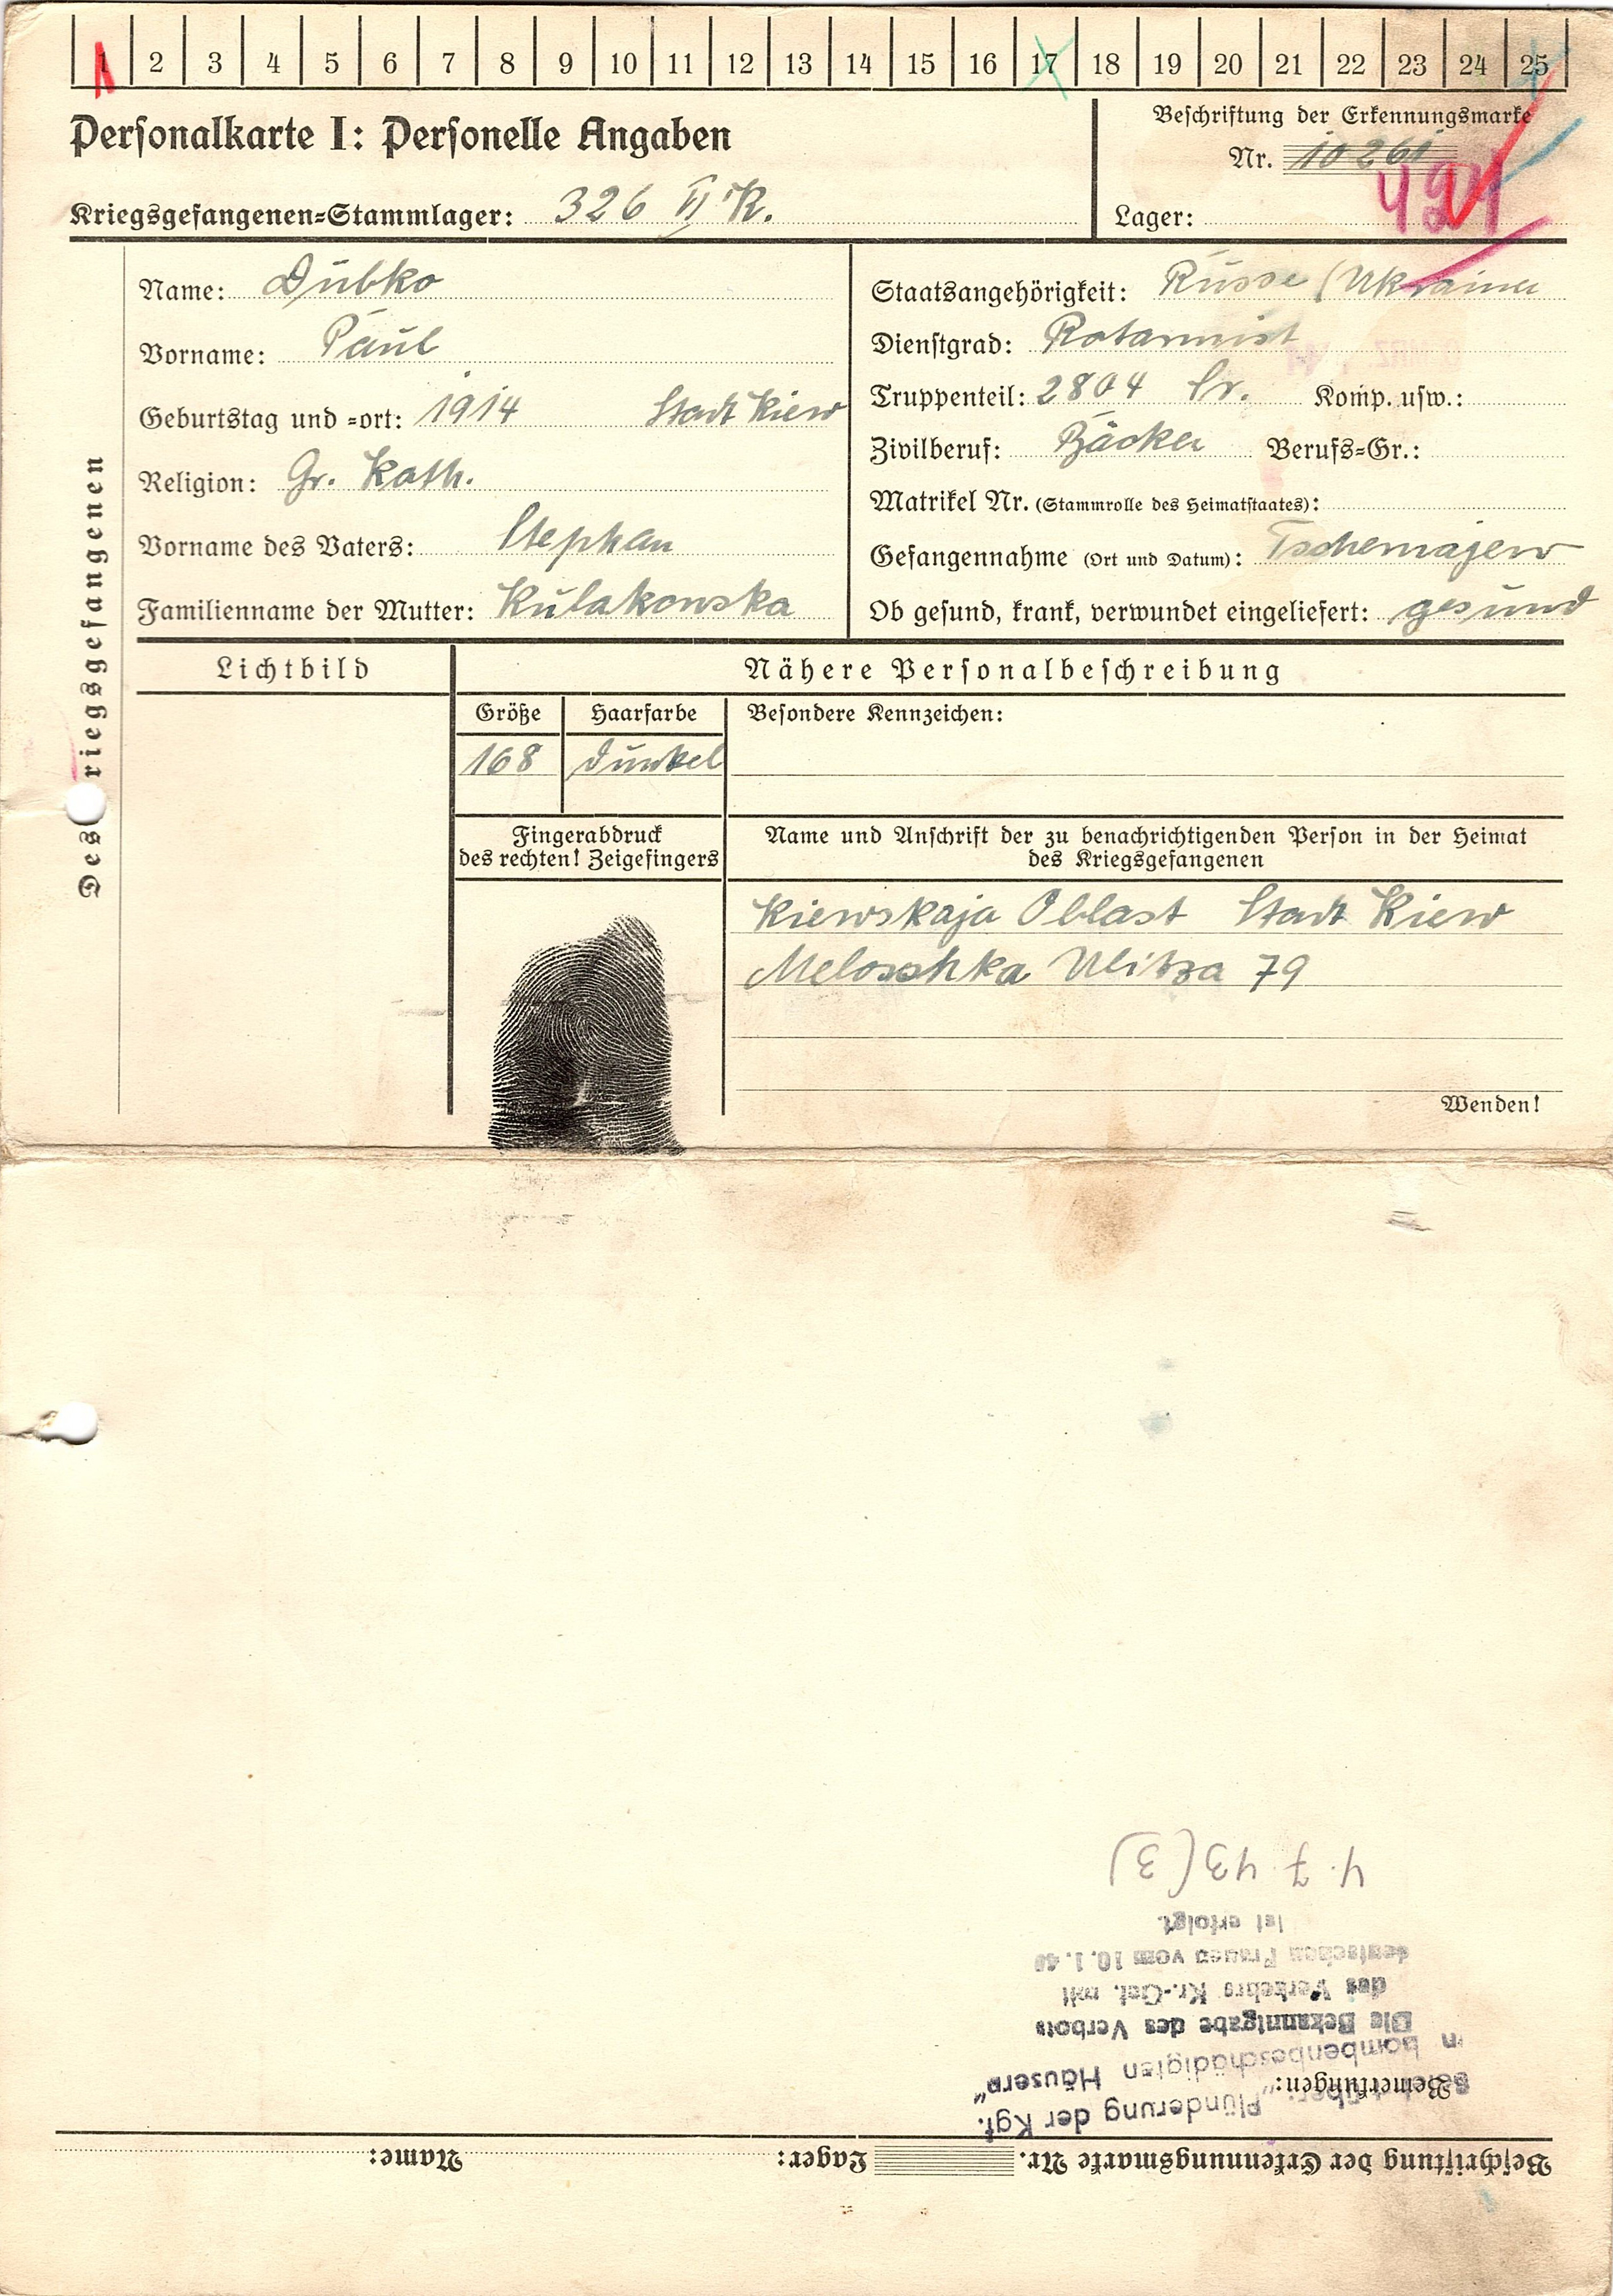 1 2 3 4 5 6 7 8 9 10 11 12 13 14 15 16 17 18 19 20 21 22 23 24 25
Personalkarte I: Personelle Angaben
Beschriftung der Erkennungsmarke
Nr. 10261
Kriegsgefangenen-Stammlager: 326 VI K.
Lager:
Des Kriegsgefangenen
Name: Dubko
Vorname: Paul
Geburtstag und -ort: 1914 Stadt Kiew
Religion: Gr. Kath.
Vorname des Vaters: Stephan
Familienname der Mutter: Kulakowska
Staatsangehörigkeit: Russe (Ukrainer
Dienstgrad: Rotarmist
Truppenteil: 2804 Komp. usw.:
Zivilberuf: Bäcker Berufs-Gr.:
Matrikel Nr. (Stammrolle des Heimatstaates):
Gefangennahme (Ort und Datum): Tschernajew
Ob gesund, krank, verwundet eingeliefert: gesund
Lichtbild
Nähere Personalbeschreibung
Größe Haarfarbe Besondere Kennzeichen:
168 dunkel
Fingerabdruck
des rechten! Zeigefingers
Name und Anschrift der zu benachrichtigenden Person in der Heimat
des Kriegsgefangenen
Kiewskaja Oblast Stadt Kiew
Meloschka Ulitza 79
Wenden!
Beschriftung der Erkennungsmarke Nr. Lager: Name:
Bemerkungen:
"Plünderung der Kgf.
in bombenbeschädigten Häusern"
Die Bekanntgabe des Verbots
des Verkehrs Kr.-Gef. mit
deutschen Frauen vom 10.1.40
ist erfolgt.
4. 7. 43 (3)